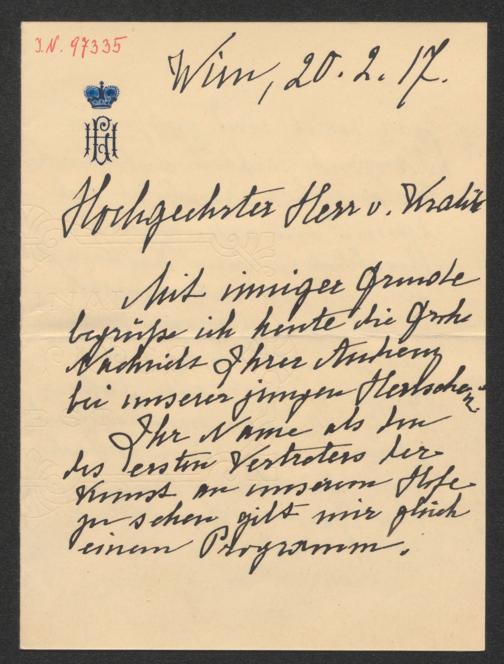 I.N. 97335
Wien, 20. 2. 17.
Hochgeehrter Herr v. Kralik
Mit inniger Freude
begrüße ich heute die frohe
Nachricht Ihrer Audienz
bei unserer jungen Herrscherin
Ihr Name als den
des ersten Vertreters der
Kunst an unserem Hofe
zu sehen gilt mir gleich
einem Programm.